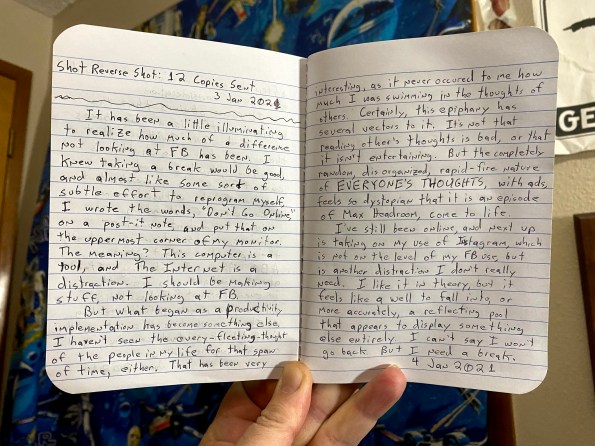 Shot Reverse Shot: 12 Copies Sent
3 Jan 2021
It has been a little illuminating
to realize how much of a difference
not looking at FB has been. I
knew taking a break would be good,
and almost like some sort of
subtle effort to reprogram myself
I wrote the words, "Don't Go Online,"
on a post-it note, and put that on
the uppermost corner of my monitor.
The meaning? This computer is a
tool, and The Internet is a
distraction. I should be making
stuff, not looking at FB.
But what began as a productivity
implementation has become something else.
I haven't seen the every-fleeting-thought
of the people in my life for that span
of time, either. That has been very
interesting, as it never occured to me how
much I was swimming in the thoughts of
others. Certainly, this epiphany has
several vectors to it. Its not that
reading other's thoughts is bad, or that
it isn't entertaining. But the completely
random, disorganized, rapid-fire nature
of EVERYONE'S THOUGHTS, with ads,
feels so dystopian that it is an episode
of Max Headroom, come to life.
I've still been online, and next up
is taking on my use of Instagram, which
is not on the level of my FB use, but
is another distraction I don't really
need. I like it in theory, but it
feels like a well to fall into, or
more accurately, a reflecting pool
that appears to display something
else entirely. I can't say I won't
go back. But I need a break.
4 Jan 2021
GE